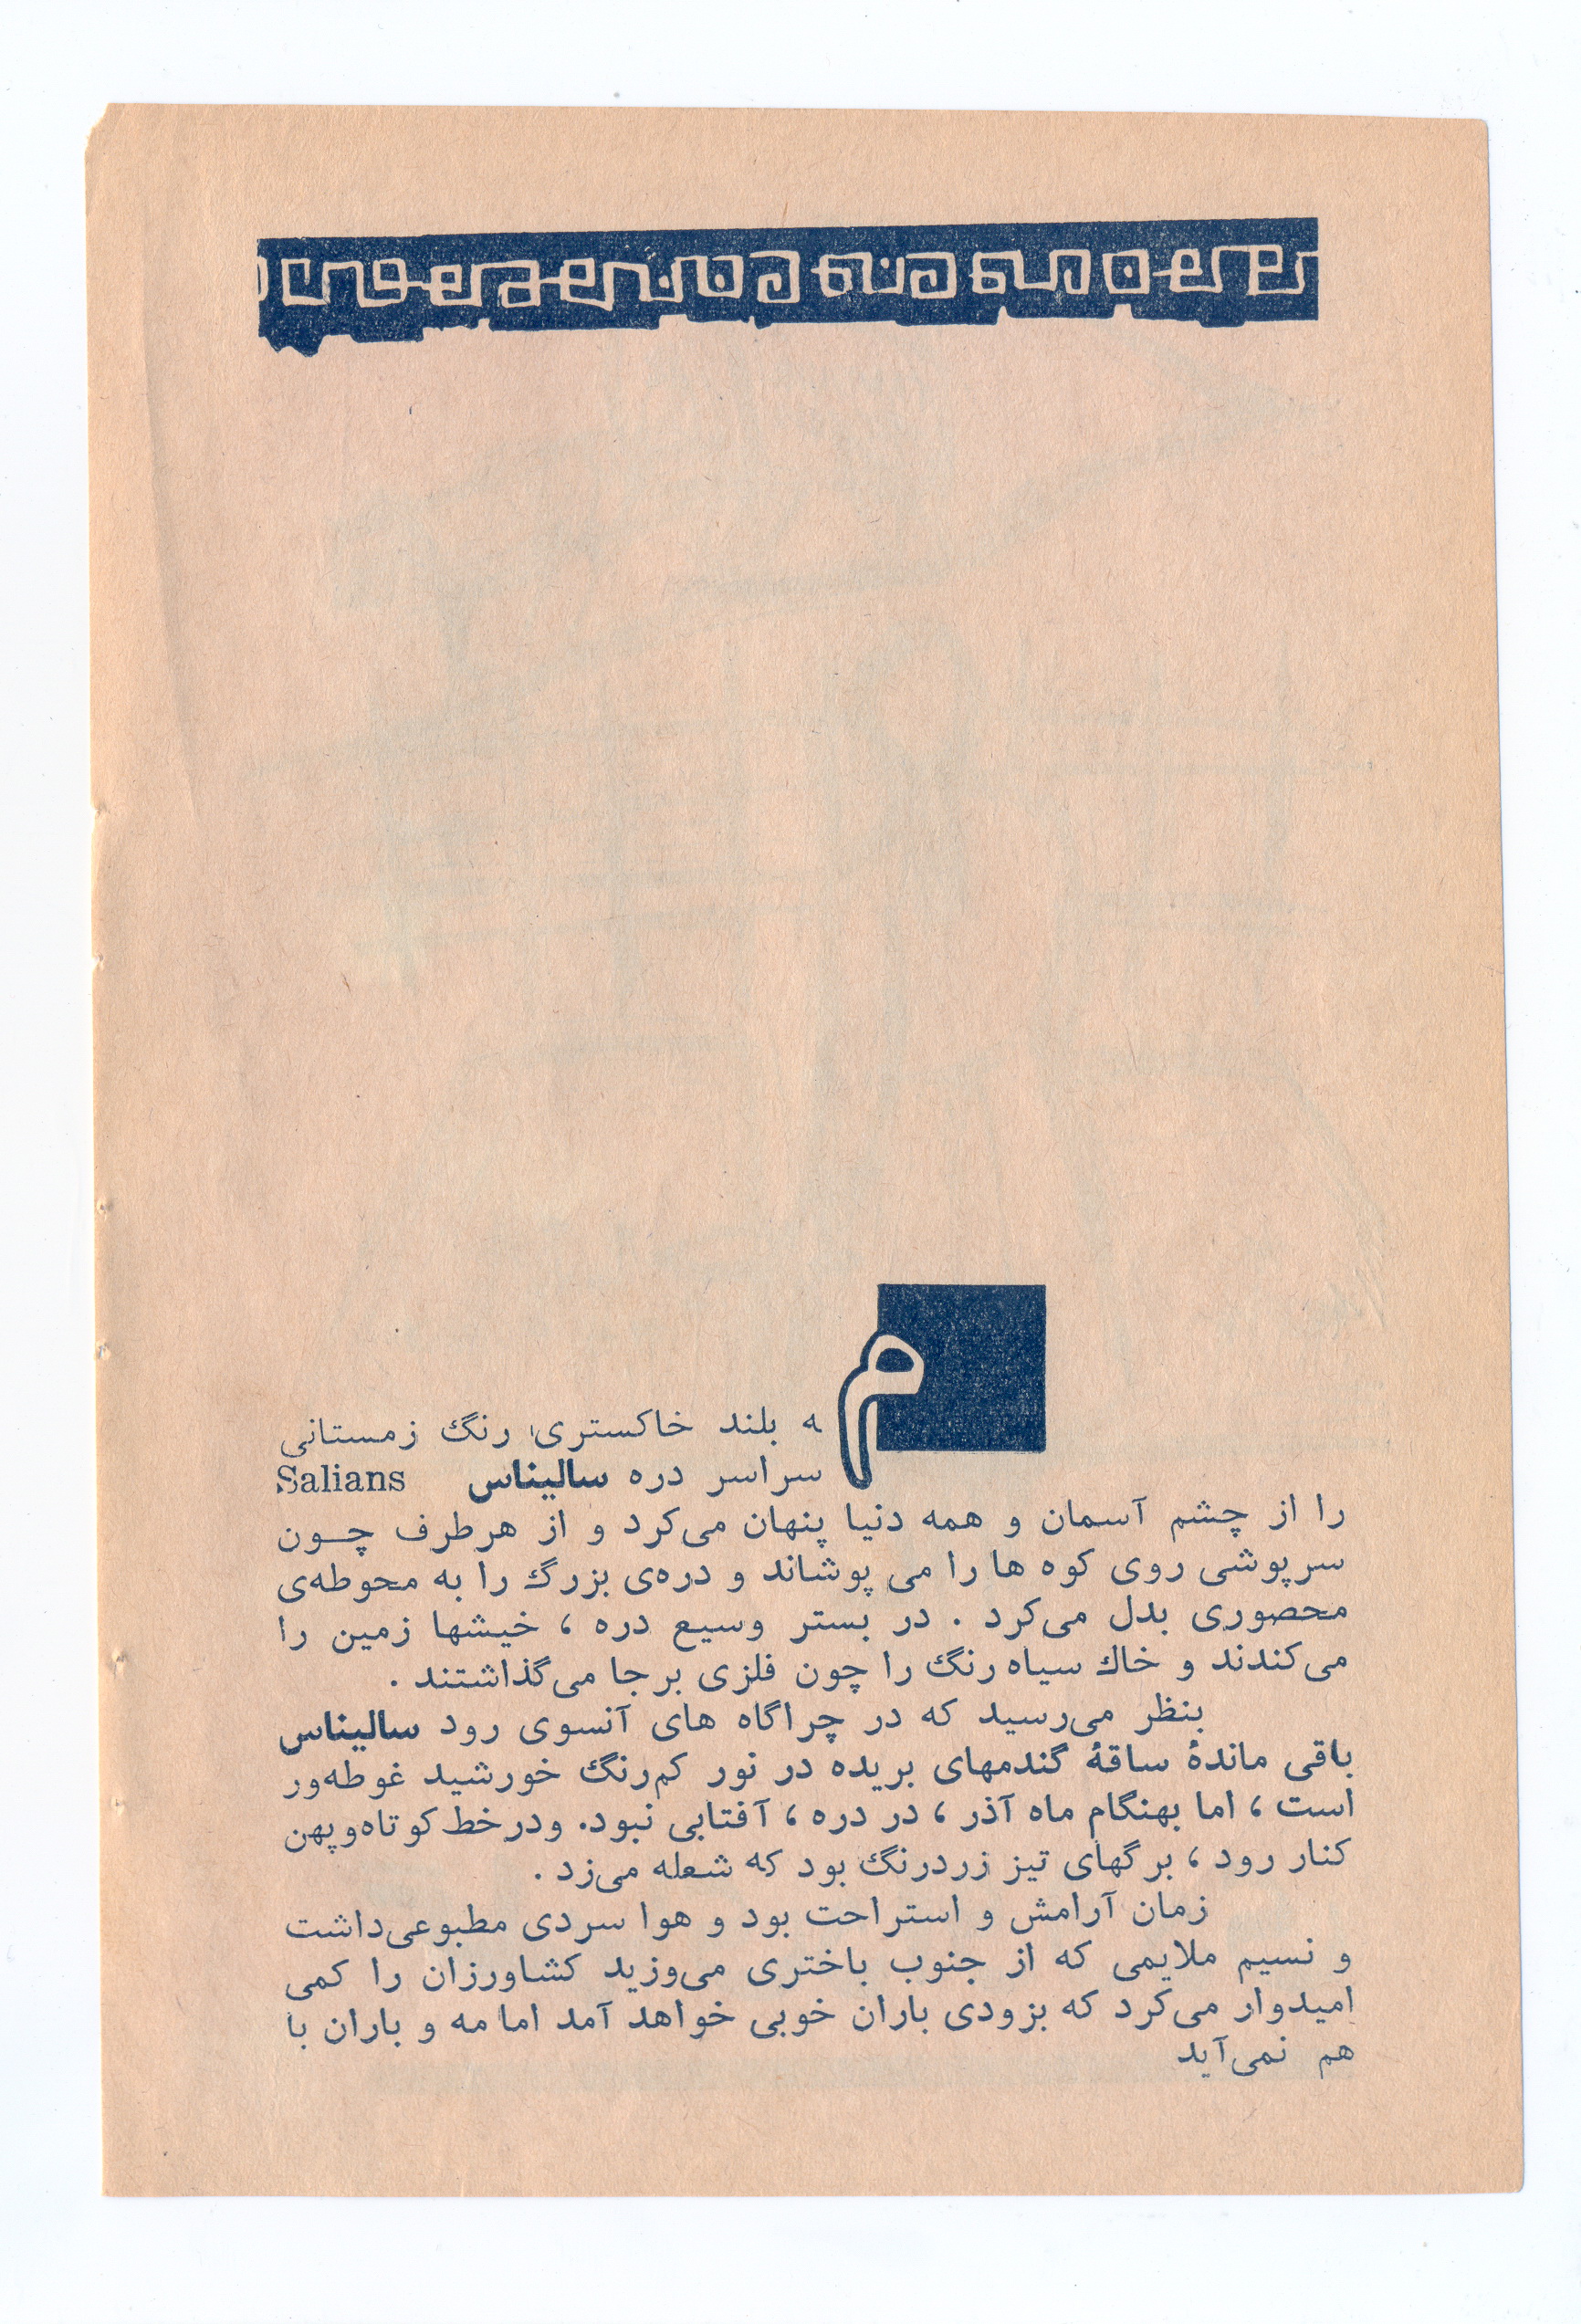 مه بلند خاکستری رنگ زمستانی
سراسر دره سالیناس Salians
را از چشم آسمان و همه دنیا پنهان می‌کرد و از هر طرف چـون
سرپوشی روی کوه ها را می پوشاند و دره‌ی بزرگ را به محوطه‌ی
محصوری بدل می‌کرد . در بستر وسیع دره ، خیشها زمین را
می‌کندند و خاك سیاه رنگ را چون فلزی بر جا می‌گذاشتند .
بنظر می‌رسید که در چراگاه های آنسوی رود سالیناس
باقی ماندهٔ ساقهٔ گندمهای بریده در نور کم‌رنگ خورشید غوطه‌ور
است ، اما بهنگام ماه آذر ، در دره ، آفتابی نبود. و در خط کوتاه و پهن
کنار رود ، برگهای تیز زرد رنگ بود که شعله می‌زد .
زمان آرامش و استراحت بود و هوا سردی مطبوعی‌داشت
و نسیم ملایمی که از جنوب باختری می‌وزید کشاورزان را کمی
امیدوار می‌کرد که بزودی باران خوبی خواهد آمد اما مه و باران با
هم نمی‌آید